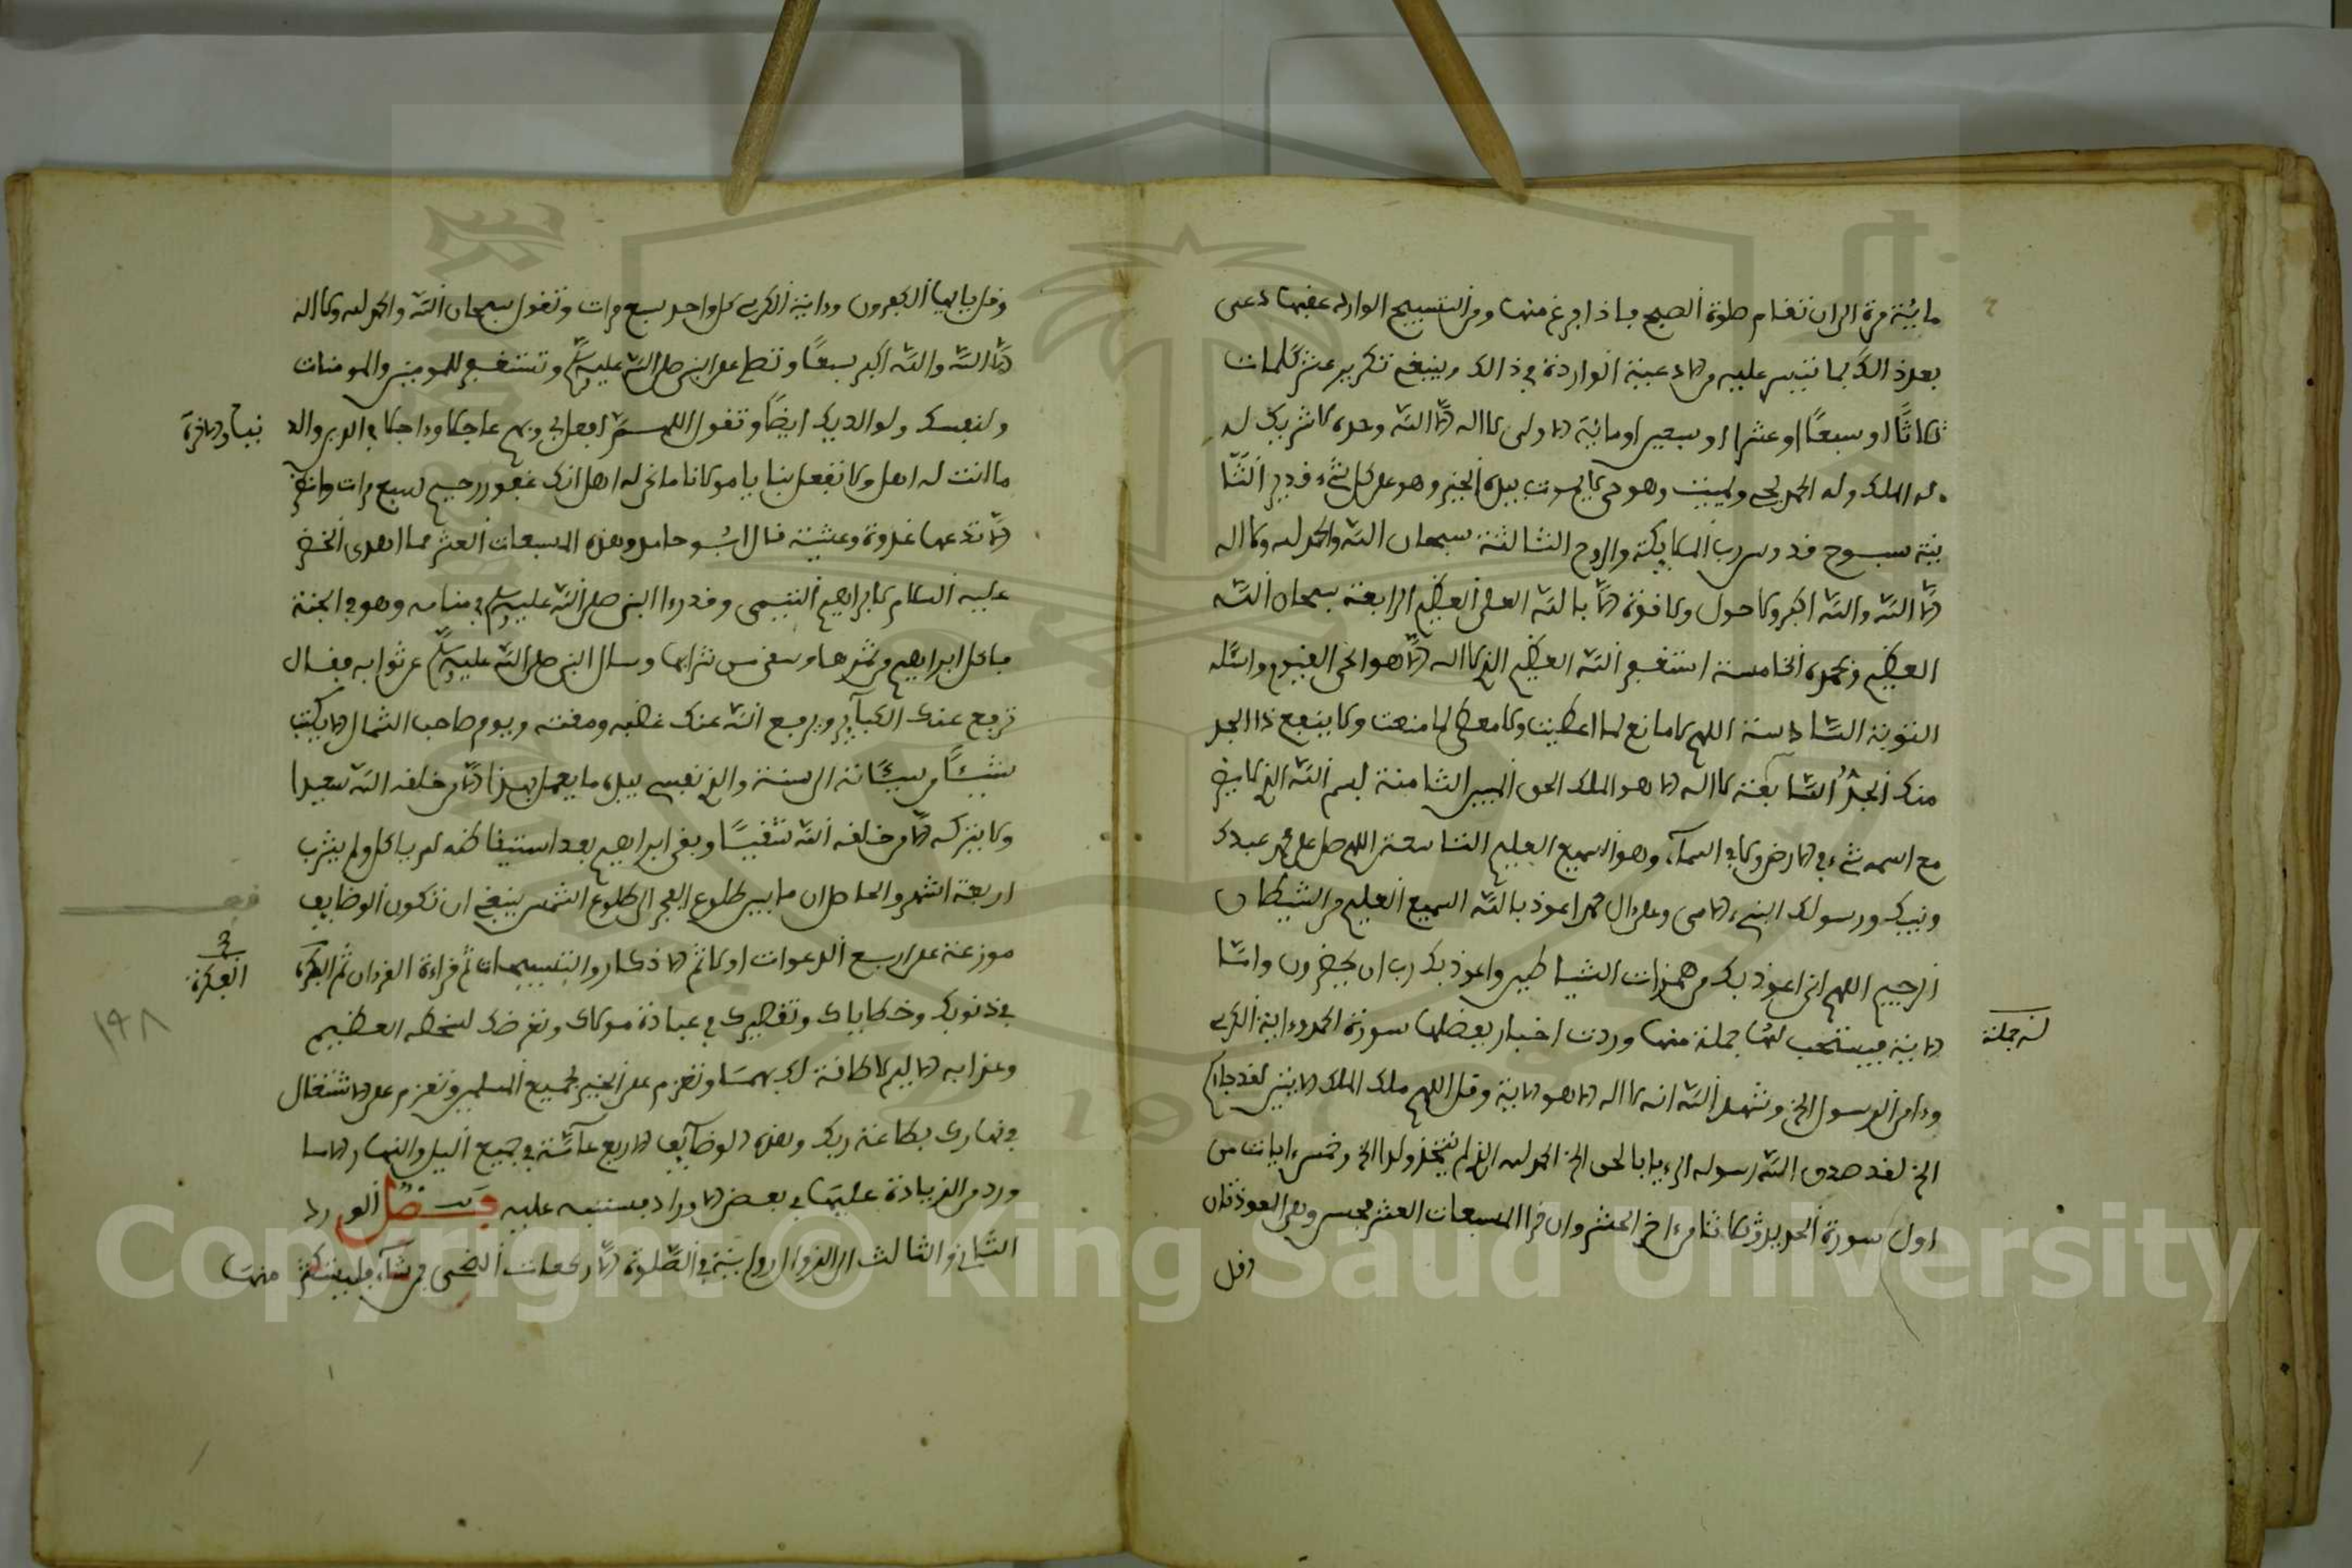 مائة مرة الى ان تقام صلوة الصبح فاذا فرغ منها ومن التسبيح الوارد عقبها دعى
بعد ذالك بما تيسر عليه من الادعية الواردة في ذالك وينبغي تكرير عشر كلمات
ثلاثا او سبعا او عشرا او سبعين او مائة الاولى لا اله الا الله وحده لا شريك له
له الملك وله الحمد يحي ويميت وهو حي لا يموت بيده الخير وهو على كل شيء قدير الثا
نية سبوح قدوس رب الملايكة والروح الثالثة سبحان الله والحمد لله ولا اله
الا الله والله اكبر ولا حول ولا قوة الا بالله العلي العظيم الرابعة سبحان الله
العظيم وبحمده الخامسة استغفر الله العظيم الذي لا اله الا هو الحي القيوم واسئله
التوبة السادسة اللهم لا مانع لما اعطيت ولا معطي لما منعت ولا ينفع ذا الجد
منك الجد السابعة لا اله الا هو الملك الحق المبين الثامنة بسم الله الذي لا يضر
مع اسمه شيء في الارض ولا في السماء وهو السميع العليم التاسعة اللهم صل على محمد عبدك
ونبيك ورسولك النبيء الامي وعلى ال محمد اعوذ بالله السميع العليم من الشيطان
الرجيم اللهم اني اعوذ بك من همزات الشياطين واعوذ بك رب ان يحضرون واما
الاية فيستحب لها جملة منها وردت اخبار بفضلها سورة الحمد وءاية الكرسي
لہ جملة
وءامن الرسول الخ وشهد الله انه لا اله الا هو الاية وقل اللهم ملك الملك الايتين لقد جاءكم
الخ لقد صدق الله رسوله الرءيا بالحق الخ الحمد لله الذي لم يتخذ ولدا الخ وخمس ءايات من
اول سورة الحديد وثلاثا من ءاخر الحشر وان قرا المسبعات العشر فحسن وهي المعوذتان
وقل
وقل يايها الكفرون وءاية الكرسي كل واحد سبع مرات وتقول سبحان الله والحمد لله ولا اله
الا الله والله اكبر سبعا وتصلي على النبي صلى الله عليه وسلم وتستغفر للمومنين والمومنات
ولنفسك ولوالديك ايضا وتقول اللهم افعل بي وبهم عاجلا وءاجلا في الدين والد
نيا والاخرة
ما انت له اهل ولا تفعل بنا يا مولانا ما نحن له اهل انك غفور رحيم سبع مرات وانظر
الا تدعها غدوة وعشية قال ابو حامد وهذه المسبعات العشر مما اهدى الخضر
عليه السلام لابراهيم التيمي وقد رءا النبي صلى الله عليه وسلم في منامه وهو في الجنة
فاكل ابراهيم من ثمرها وسقي من شرابها وسال النبي صلى الله عليه وسلم عن ثوابه فقال
ترفع عنك الكباير ويرفع الله عنك غضبه ومقته ويومر صاحب الشمال الا يكتب
شيئا من سيئاته الى سنة والذي نفسي بيده ما يعمل بهذا الا من خلقه الله سعيدا
ولا يتركه الا من خلقه الله شقيا وبقي ابراهيم بعد استيقاظه لم ياكل ولم يشرب
اربعة اشهر والحاصل ان ما بين طلوع الفجر الى طلوع الشمس ينبغي ان تكون الوظايف
موزعة على اربع الدعوات اولا ثم الاذكار والتسبيحات ثم قراءة القرءان ثم الفكرة
الفكرة
في ذنوبك وخطاياك وتقصيرك في عبادة مولاك وتعرضك لسخطه العظيم
١٩٨
وعذابه الاليم لا طاقة لك بهما وتعزم على الخير لجميع المسلمين وتعزم على الاشتغال
في نهارك بطاعة ربك وهذه الوظايف الاربع عامة في جميع اليل والنهار الا ما
ورد من الزيادة عليها في بعض الاوراد فستنبه عليه فصل الورد
الثاني والثالث الى الزوال راتبة في الصلوة الا ركعات الضحى من شاء فليستكثر منها